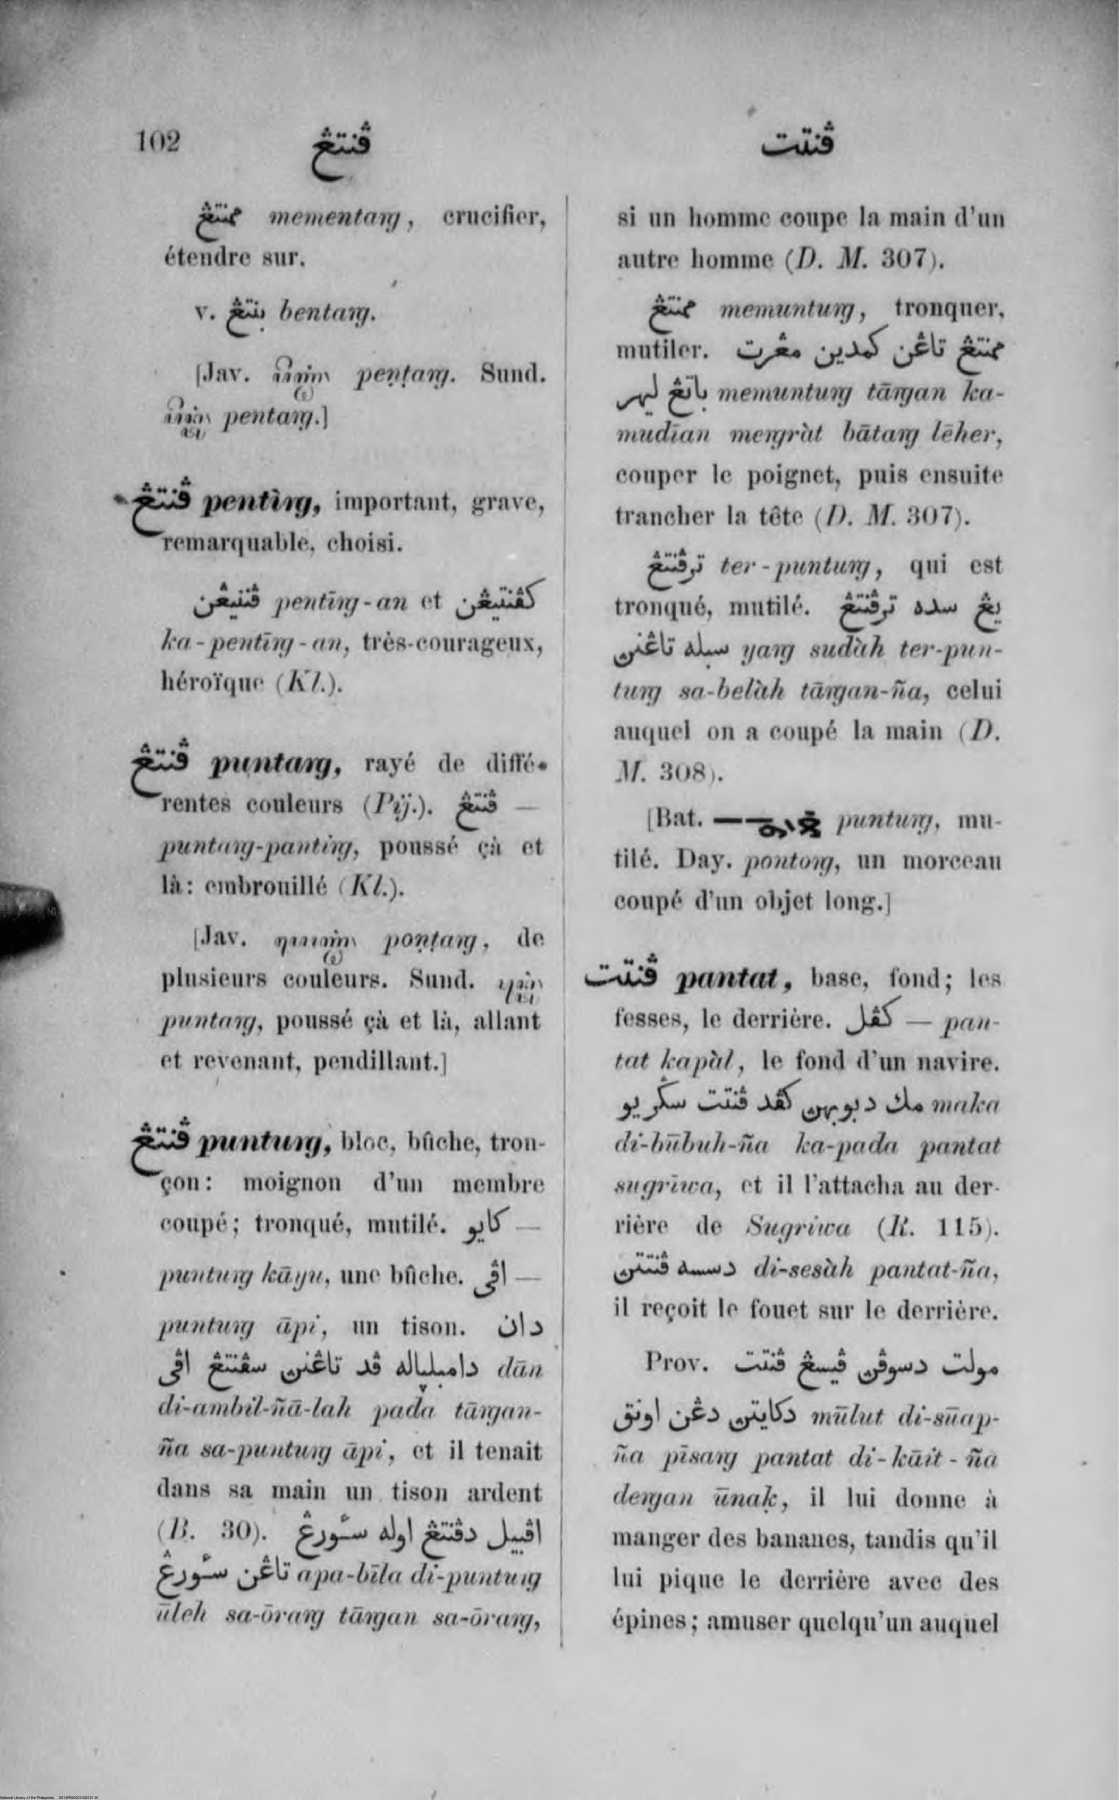 102 ڤنتڠ ڤنتت
ممنتڠ mementaŋ, crucifier,
étendre sur.
v. بنتڠ bentaŋ.
[Jav. peṇṭaŋ. Sund.
pentaŋ.]
ڤنتڠ pentìŋ, important, grave,
remarquable, choisi.
ڤنتيڠن pentīŋ-an et كڤنتيڠن
ka-pentīŋ-an, très-courageux,
héroïque (Kl.).
ڤنتڠ puntaŋ, rayé de diffé-
rentes couleurs (Pij.). ڤنتڠ —
puntaŋ-pantiŋ, poussé çà et
là: embrouillé (Kl.).
[Jav. poṇṭaŋ, de
plusieurs couleurs. Sund.
puntaŋ, poussé çà et là, allant
et revenant, pendillant.]
ڤنتڠ puntuŋ, bloc, bûche, tron-
çon: moignon d'un membre
coupé; tronqué, mutilé. كايو —
puntuŋ kāyu, une bûche. اڤي —
puntuŋ āpi, un tison. دان
دامبلڽاله ڤد تاڠنڽ سڤنتڠ اڤي dān
di-ambil-ñā-lah pada tāŋan-
ña sa-puntuŋ āpi, et il tenait
dans sa main un tison ardent
(B. 30). اڤبيل دڤنتڠ اوله سٴورڠ
تاڠن سٴورڠ apa-bīla di-puntuŋ
ūleh sa-ōraŋ tāŋan sa-ōraŋ,
si un homme coupe la main d'un
autre homme (D. M. 307).
ممنتڠ memuntuŋ, tronquer,
mutiler. ممنتڠ تاڠن كمدين مڠرت
باتڠ ليهر memuntuŋ tāŋan ka-
mudīan meŋràt bātaŋ lēher,
couper le poignet, puis ensuite
trancher la tête (D. M. 307).
ترڤنتڠ ter-puntuŋ, qui est
tronqué, mutilé. يڠ سده ترڤنتڠ
سبله تاڠنڽ yaŋ sudàh ter-pun-
tuŋ sa-belàh tāŋan-ña, celui
auquel on a coupé la main (D.
M. 308).
[Bat. puntuŋ, mu-
tilé. Day. pontoŋ, un morceau
coupé d'un objet long.]
ڤنتت pantat, base, fond; les
fesses, le derrière. كڤل — pan-
tat kapàl, le fond d'un navire.
مك دبوبهڽ كڤد ڤنتت سڬريو maka
di-būbuh-ña ka-pada pantat
sugrīwa, et il l'attacha au der-
rière de Sugrīwa (R. 115).
دسسه ڤنتتڽ di-sesàh pantat-ña,
il reçoit le fouet sur le derrière.
Prov. مولت دسوڤڽ ڤيسڠ ڤنتت
دكايتڽ دڠن اونق mūlut di-sūap-
ña pīsaŋ pantat di-kāit-ña
deŋan ūnaḳ, il lui donne à
manger des bananes, tandis qu'il
lui pique le derrière avec des
épines; amuser quelqu'un auquel